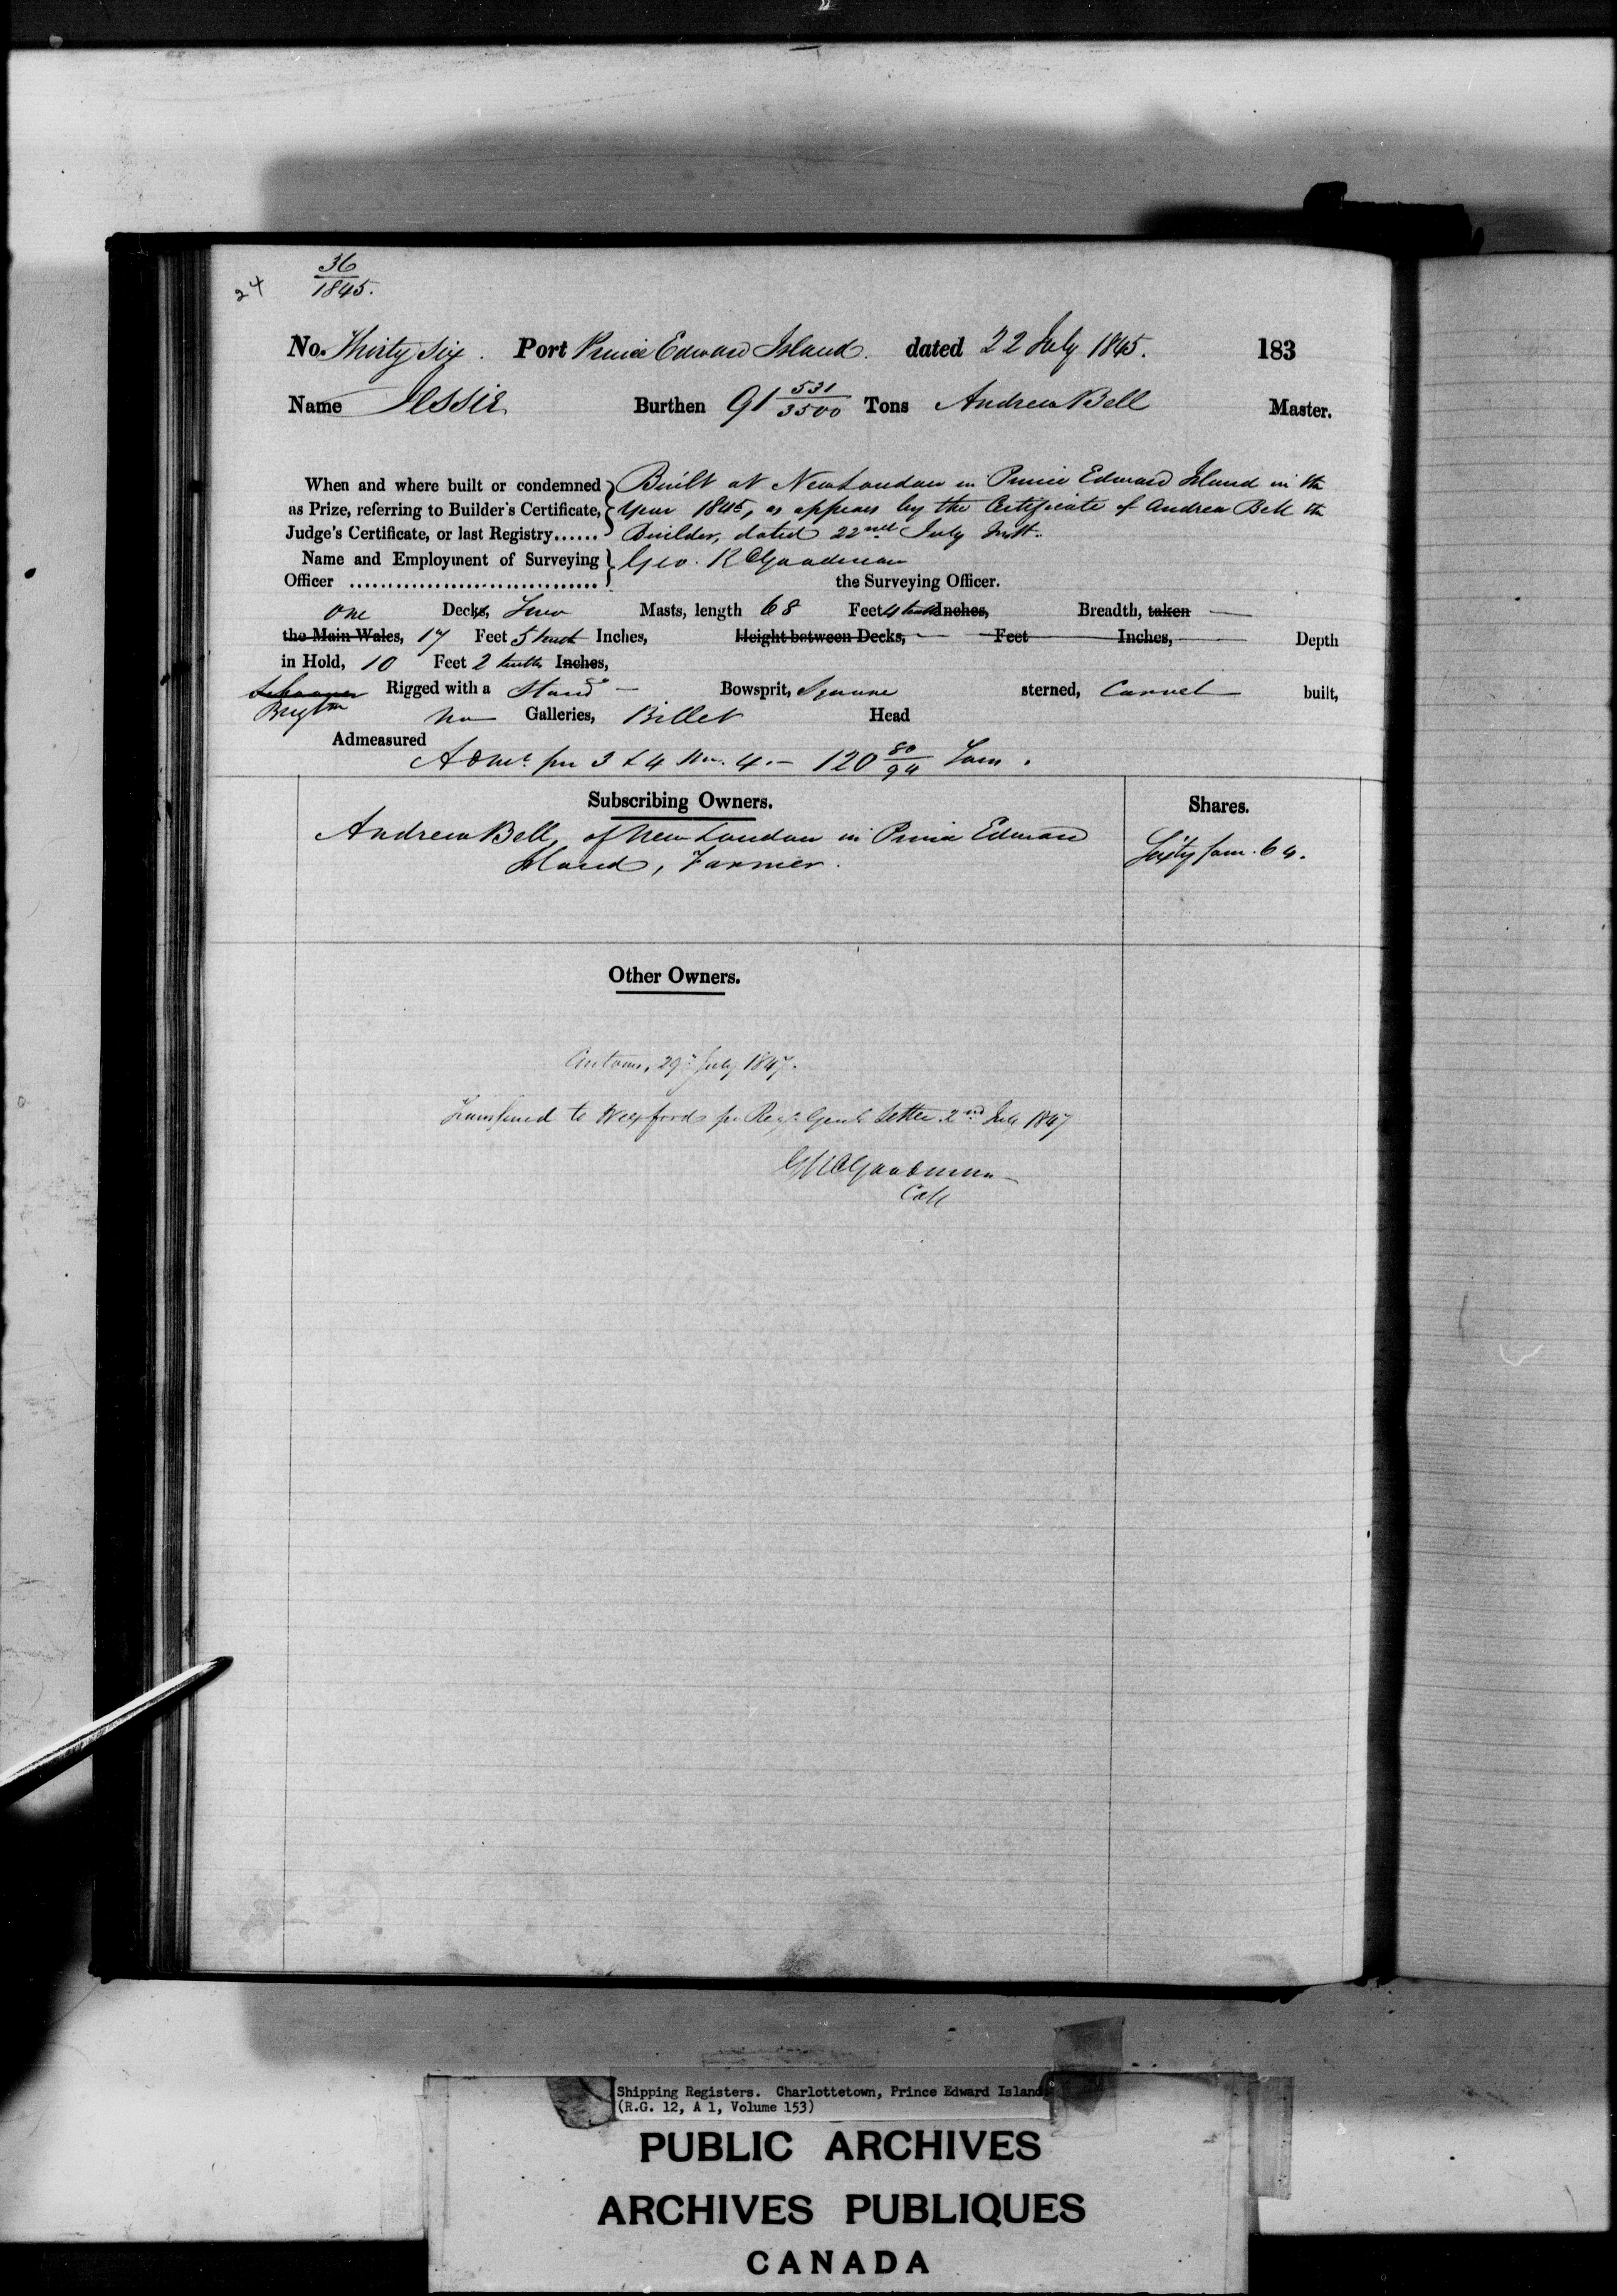 24
36
1845.
No. Thirty Six. Port Prince Edward Island. dated 22 July 1845. 183
Name Jessie Burthen 91 531/3500 Tons Andrew Bell Master.
When and where built or condemned Built at New London in Prince Edward Island in the
as Prize, referring to Builder's Certificate, Year 1845, as appears by the Certificate of Andrew Bell the
Judge's Certificate, or last Registry...... Builder, dated 22nd July Inst.
Name and Employment of Surveying Geo. R Goodman
Officer ................................. the Surveying Officer.
One Decks, Two Masts, length 68 Feet 4 tenths Inches, Breadth, taken
the Main Wales, 17 Feet 5 tenths Inches, Height between Decks, Feet Inches, Depth
in Hold, 10 Feet 2 tenths Inches,
Schooner Rigged with a Standg Bowsprit, Square sterned, Carvel built,
Brigtn No Galleries, Billet Head
Admeasured
Adme. per 3 & 4 Wm. 4. 120 80/94 Tons.
Subscribing Owners. Shares.
Andrew Bell, of New London in Prince Edward
Island, Farmer. Sixty four. 64.
Other Owners.
Customs, 29th July 1847.
Transferred to Wexford per Regr. Genls Letter 2nd July 1847
GR Goodman
Coll
Shipping Registers. Charlottetown, Prince Edward Island
(R.G. 12, A 1, Volume 153)
PUBLIC ARCHIVES
ARCHIVES PUBLIQUES
CANADA